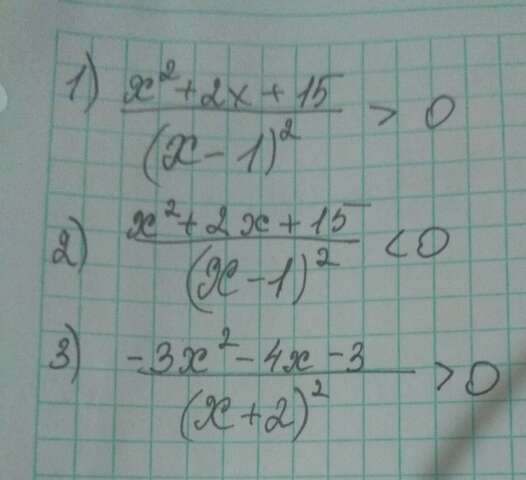 1) (x² + 2x + 15) / (x - 1)² > 0
2) (x² + 2x + 15) / (x - 1)² < 0
3) (-3x² - 4x - 3) / (x + 2)² > 0